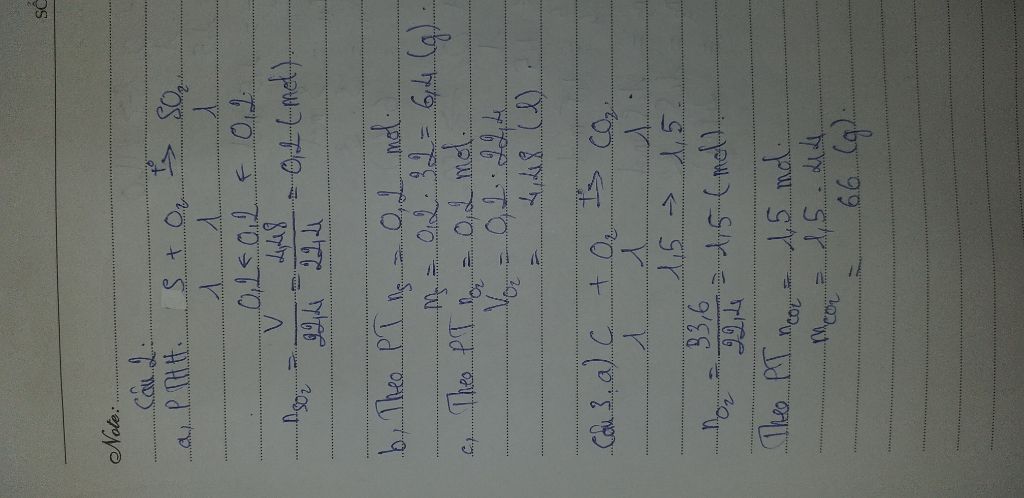 SỐ
Note:
Câu 2.
a, PTHH. S + O₂ t°→ SO₂
1 1 1
0,2 ← 0,2 ← 0,2.
nSO₂ = V/22,4 = 4,48/22,4 = 0,2 (mol)
b, Theo PT nS = 0,2 mol.
mS = 0,2 . 32 = 6,4 (g).
c, Theo PT nO₂ = 0,2 mol.
VO₂ = 0,2 . 22,4
= 4,48 (l).
Câu 3. a) C + O₂ t°→ CO₂
1 1 1.
1,5 → 1,5.
nO₂ = 33,6/22,4 = 1,5 (mol).
Theo PT nCO₂ = 1,5 mol.
mCO₂ = 1,5 . 44
= 66 (g).